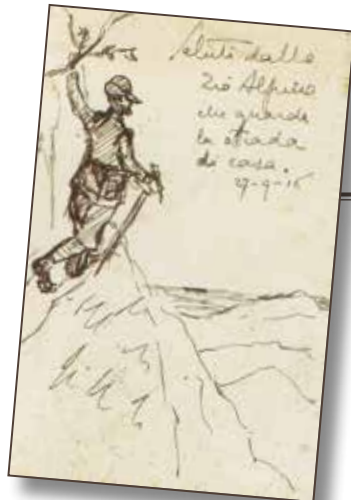 Saluti dallo
Zio Alpino
che guarda
la strada
di casa.
27-9-15